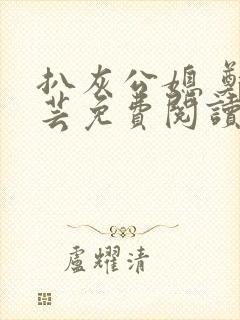 扒灰公媳
芸免費閱讀
盧耀清